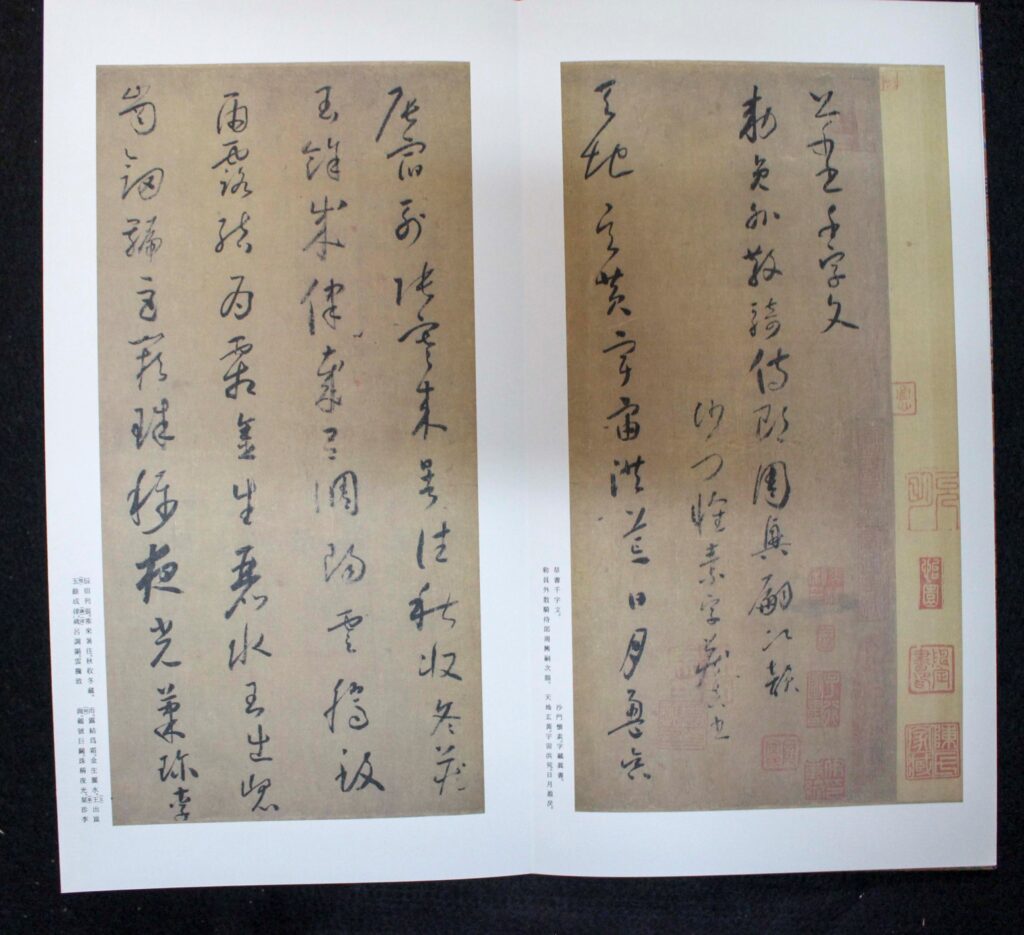 草書千字文
勅員外散騎侍郎周興嗣次韻
沙門懷素字藏真書
天地玄黃宇宙洪荒日月盈昃
草書千字文。
勅員外散騎侍郎周興嗣次韻。
沙門懷素，字藏真書。
天地玄黃，宇宙洪荒。日月盈昃，
辰宿列張寒來暑往秋收冬藏
玉餘成律歲呂調陽雲騰致
雨露結為霜金生麗水玉出崑
崗劍號巨闕珠稱夜光菓珍李
辰宿列張。寒來暑往，秋收冬藏。
玉餘成律歲呂調陽。雲騰致
雨露結爲霜。金生麗水，玉出崑
崗。劍號巨闕，珠稱夜光。菓珍李